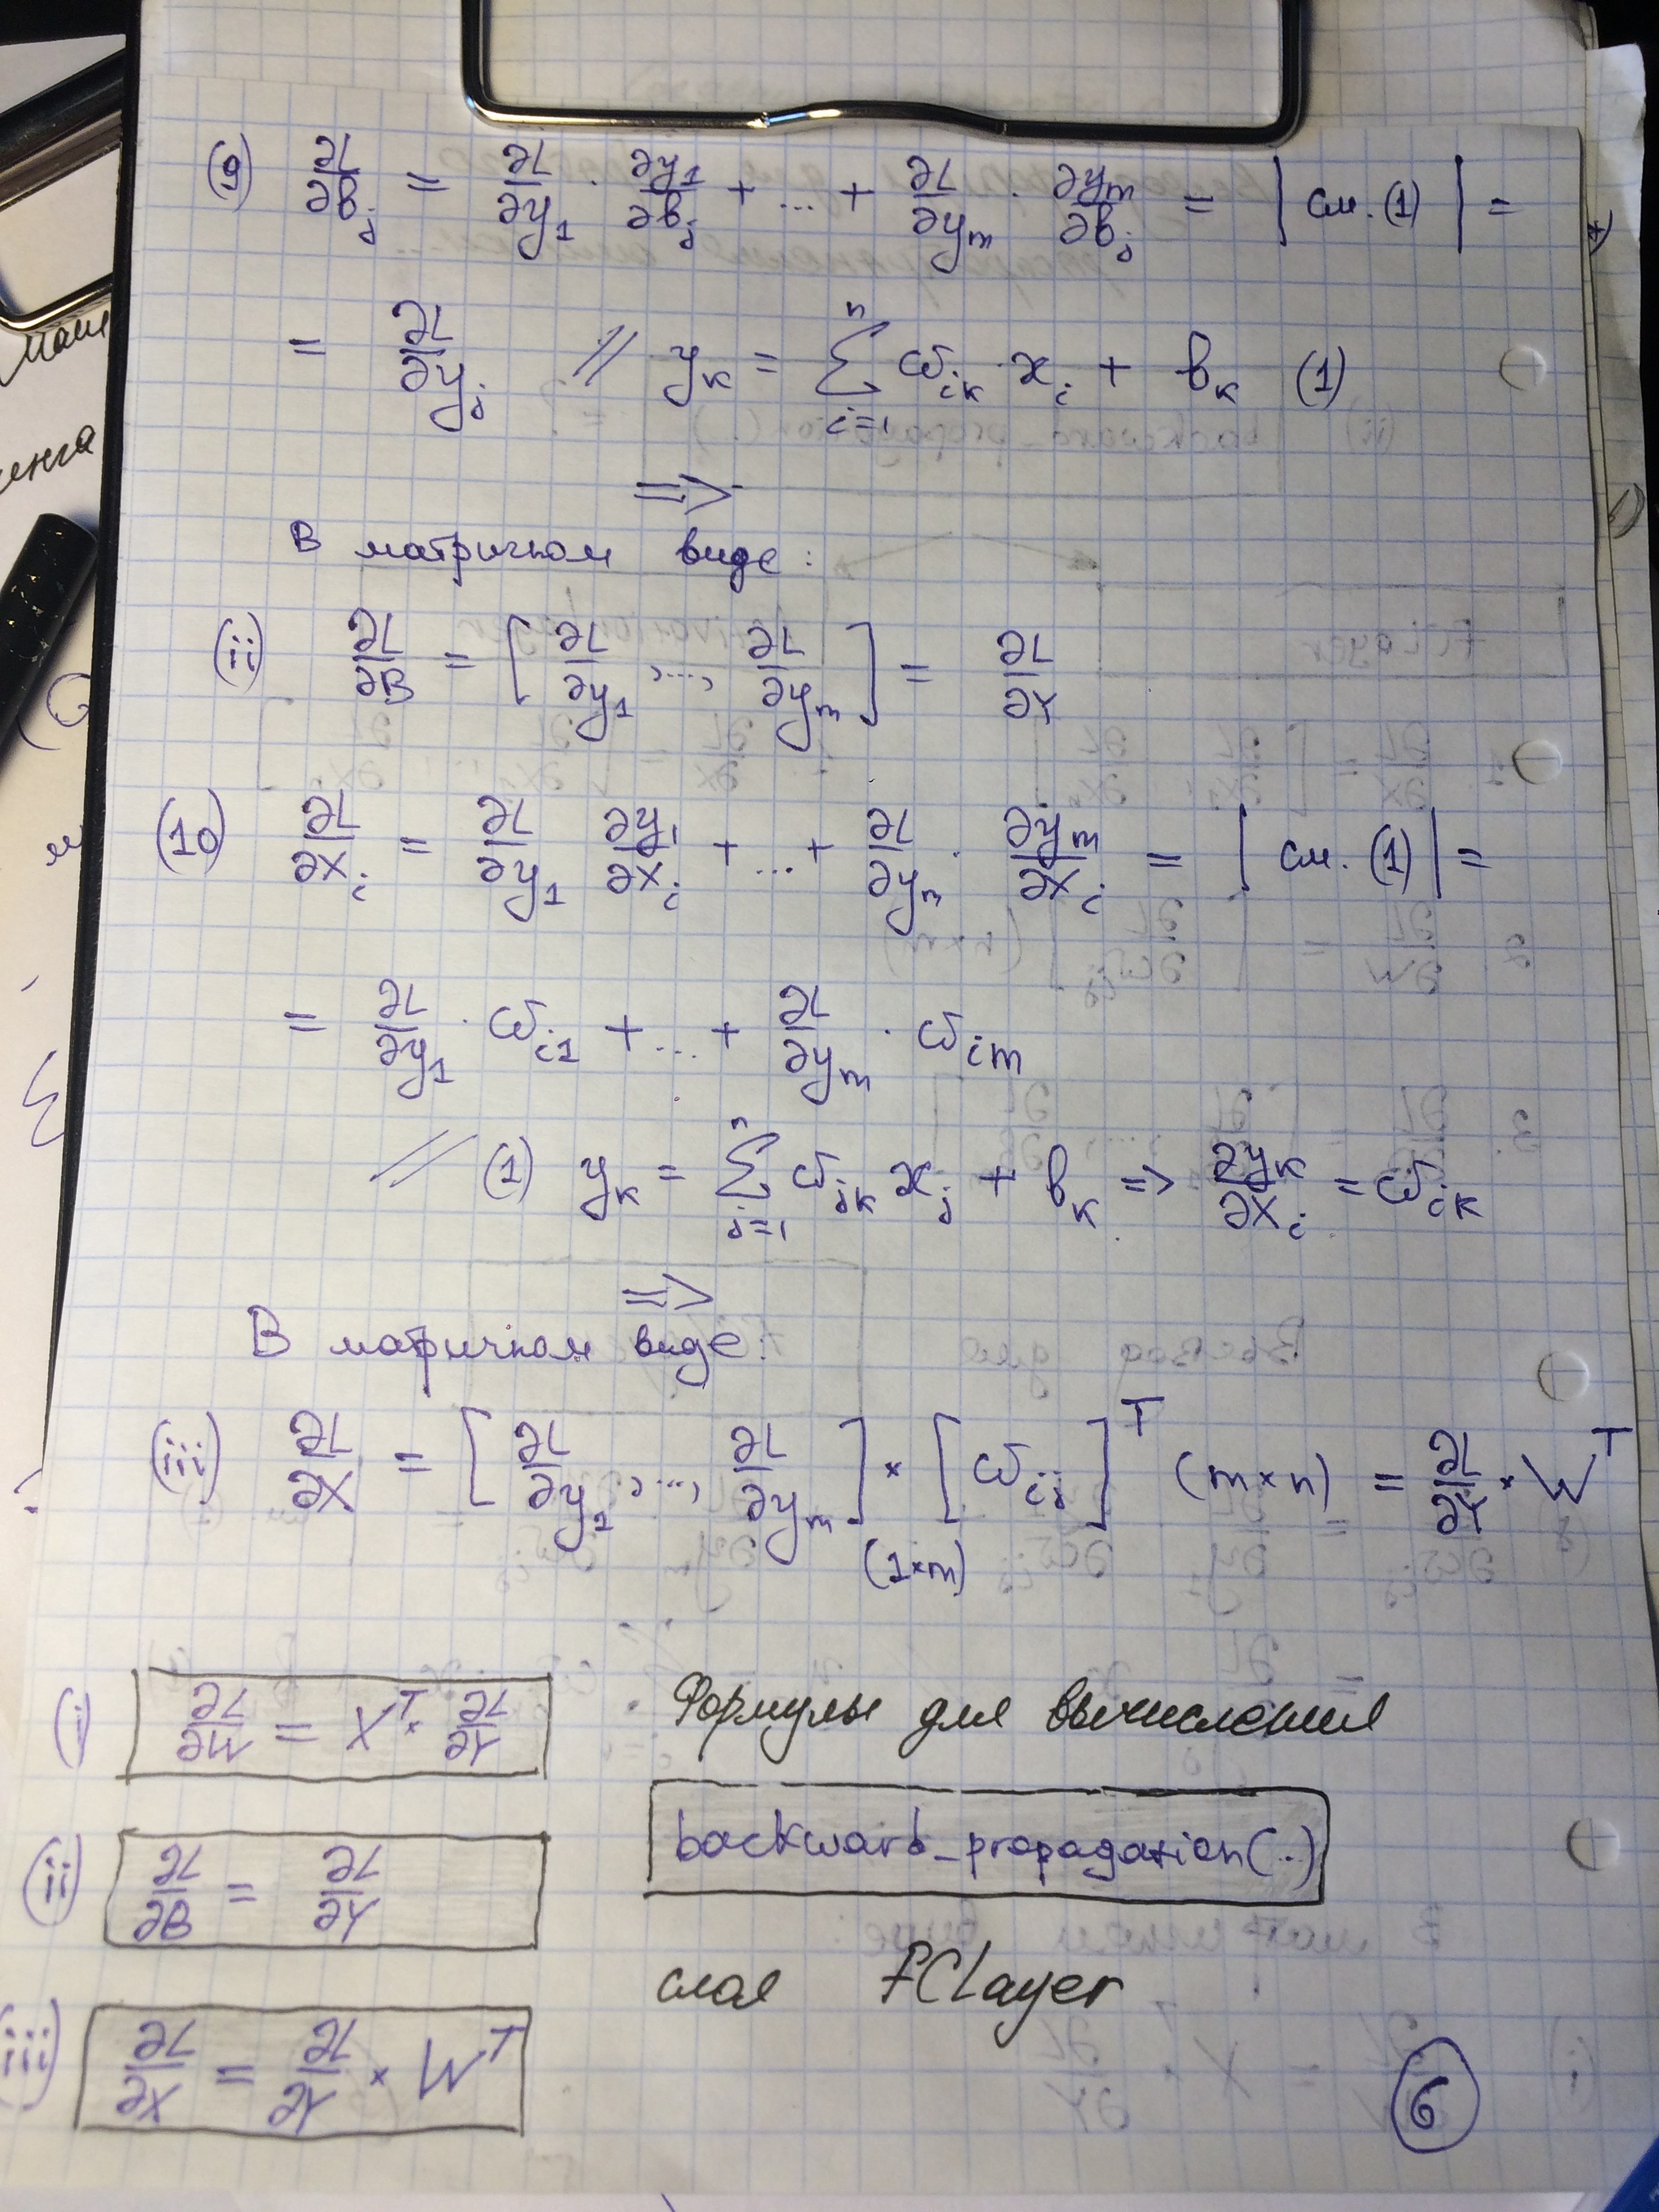 (9) ∂L/∂b_j = ∂L/∂y_1 · ∂y_1/∂b_j + ... + ∂L/∂y_m · ∂y_m/∂b_j = | см. (1) | =
= ∂L/∂y_j // y_k = Σ_{i=1}^{n} ω_{ik} · x_i + b_k (1)
=>
В матричном виде:
(ii) ∂L/∂B = [∂L/∂y_1, ..., ∂L/∂y_m] = ∂L/∂Y
(10) ∂L/∂x_i = ∂L/∂y_1 ∂y_1/∂x_i + ... + ∂L/∂y_m · ∂y_m/∂x_i = | см. (1) | =
= ∂L/∂y_1 · ω_{i1} + ... + ∂L/∂y_m · ω_{im}
// (1) y_k = Σ_{j=1}^{n} ω_{jk} x_j + b_k => ∂y_k/∂x_i = ω_{ik}
=>
В матричном виде:
(iii) ∂L/∂X = [∂L/∂y_1, ..., ∂L/∂y_m] × [ω_{ij}]^T (m×n) = ∂L/∂Y × W^T
(1×m)
(i) ∂L/∂W = X^T · ∂L/∂Y
Формулы для вычисления
backward_propagation(..)
(ii) ∂L/∂B = ∂L/∂Y
слоя FCLayer
(iii) ∂L/∂X = ∂L/∂Y × W^T
6